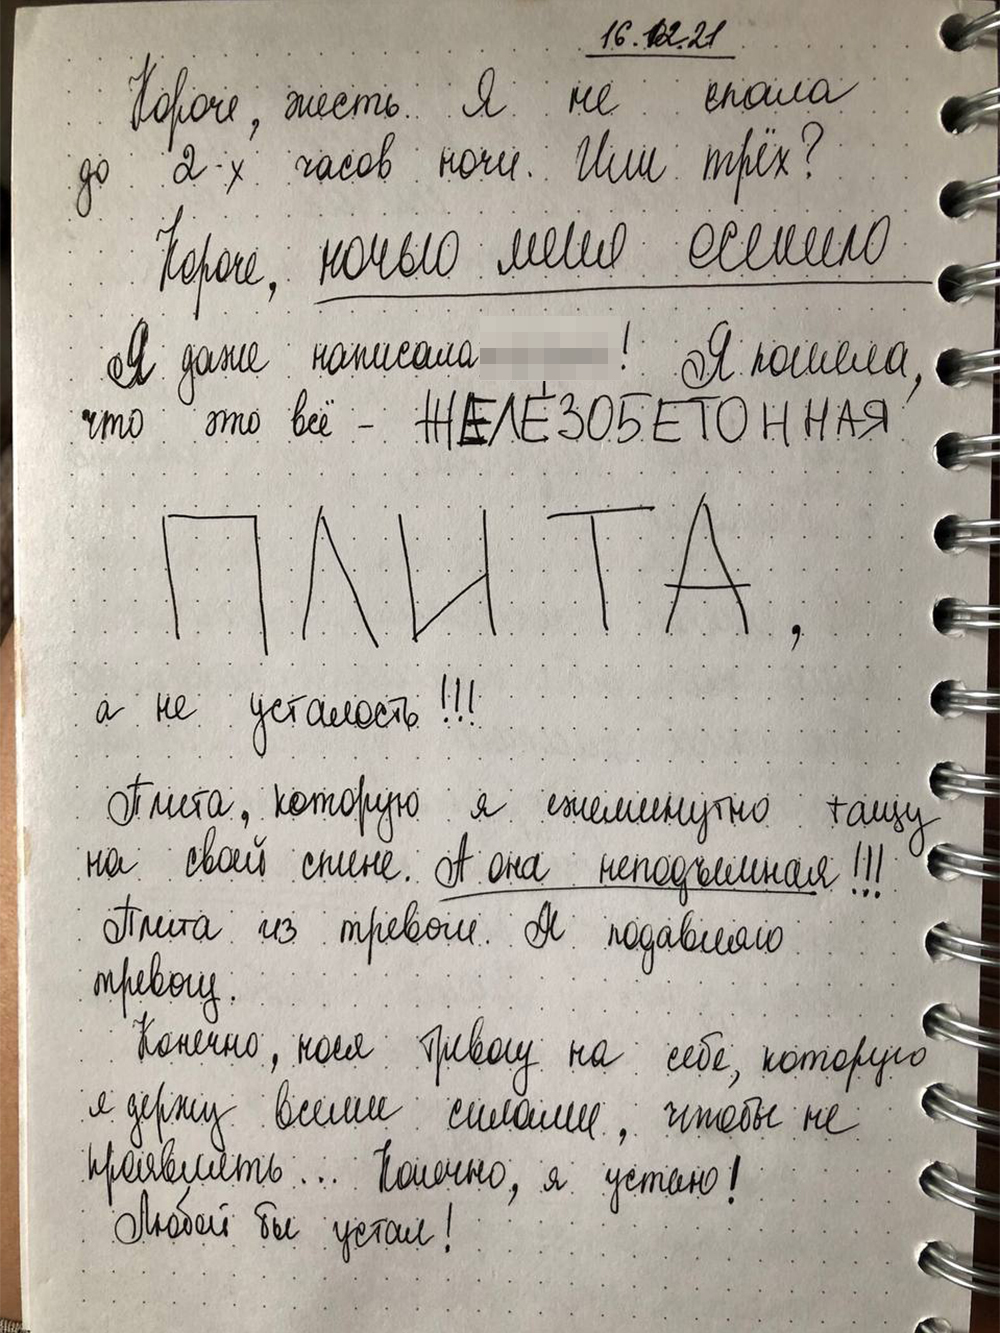 16.02.21
Короче, жесть. Я не спала
до 2-х часов ночи. Или трёх?
Короче, ночью меня осенило
Я даже написала ! Я поняла,
что это всё - ЖЕЛЕЗОБЕТОННАЯ
ПЛИТА,
а не усталость!!!
Плита, которую я ежеминутно тащу
на своей спине. А она неподъемная!!!
Плита из тревоги. Я подавляю
тревогу.
Конечно, нося тревогу на себе, которую
я держу всеми силами, чтобы не
проявлять... Конечно, я устаю!
Любой бы устал!